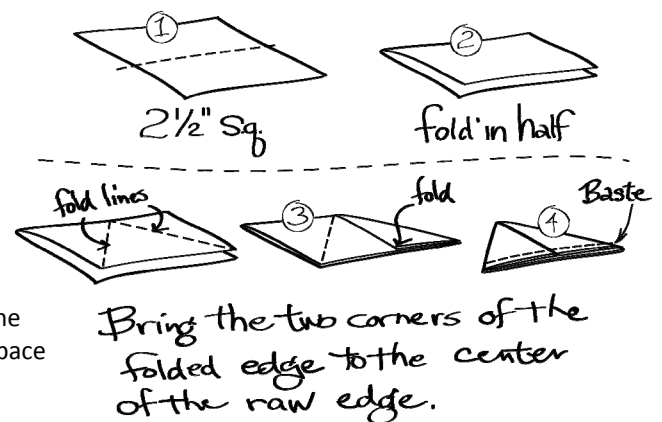 1
2
2½" Sq.
fold in half
fold lines
3
fold
4
Baste
Bring the two corners of the
folded edge to the center
of the raw edge.